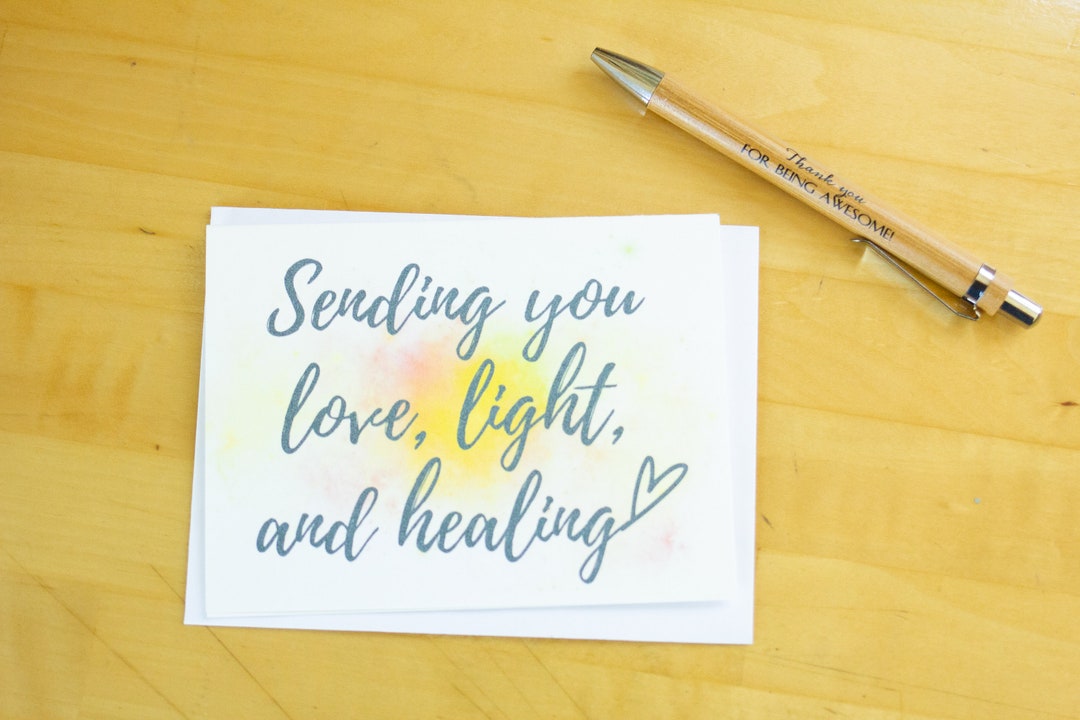 Sending you
love, light,
and healing
Thank you
FOR BEING AWESOME!